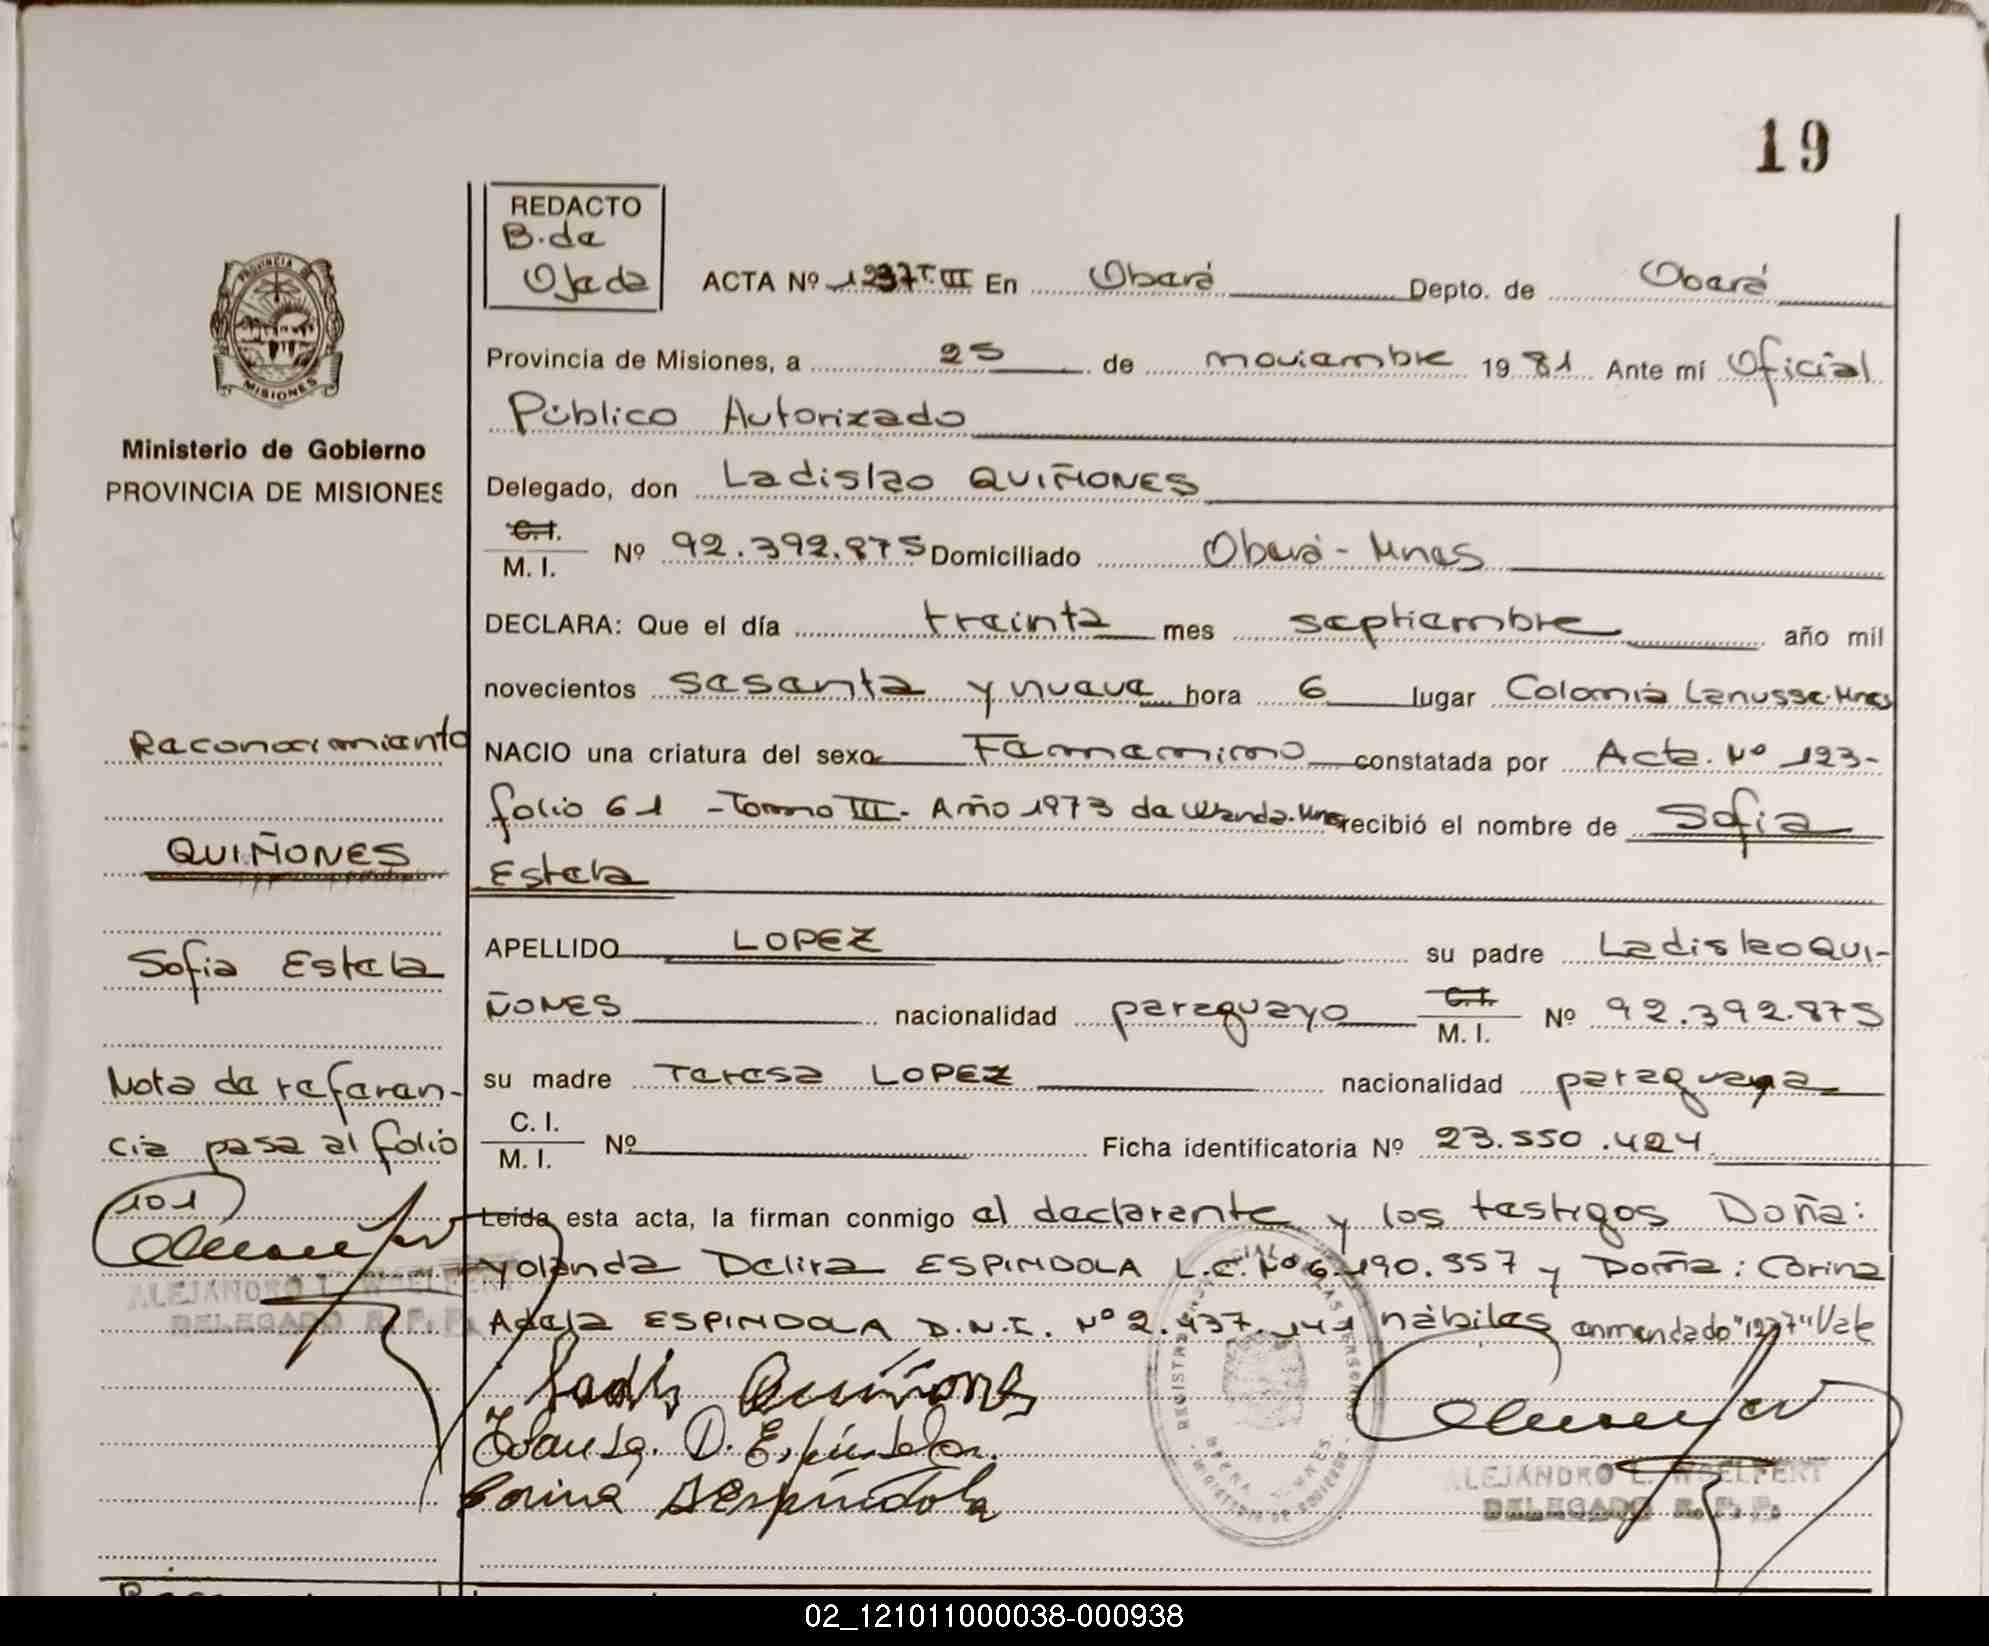 19
REDACTO
B. de
Ojeda
ACTA Nº 1237 T. III En Oberá Depto. de Oberá
Provincia de Misiones, a 25 de noviembre 1981 Ante mí Oficial
Público Autorizado
Delegado, don Ladislao QUIÑONES
C.I.
M. I. Nº 92.392.875 Domiciliado Oberá - Mnes
DECLARA: Que el día treinta mes septiembre año mil
novecientos sesenta y nueve hora 6 lugar Colonia Lanusse. Mnes
NACIO una criatura del sexo Femenino constatada por Acta. Nº 123-
folio 61 - Tomo III - Año 1973 de Wanda. Mnes recibió el nombre de Sofia
Estela
APELLIDO LOPEZ su padre Ladislao QUI-
ÑONES nacionalidad paraguayo C.I.
M. I. Nº 92.392.875
su madre Teresa LOPEZ nacionalidad paraguaya
C. I.
M. I. Nº Ficha identificatoria Nº 23.550.424
Leída esta acta, la firman conmigo el declarante y los testigos Doña:
Yolanda Delira ESPINDOLA L.C. Nº 6.190.557 y Doña: Corina
Adela ESPINDOLA D.N.I. Nº 2.437.141 hábiles enmendado "1237" Vale
Quiñones
D. Espindola
Corina A Espíndola
ALEJANDRO L. WSELFERT
DELEGADO R. P. P.
PROVINCIA DE
MISIONES
Ministerio de Gobierno
PROVINCIA DE MISIONES
Reconocimiento
QUIÑONES
Sofia Estela
Nota de referen-
cia pasa al folio
101
ALEJANDRO L. WSELFERT
DELEGADO R. P. P.
02_121011000038-000938